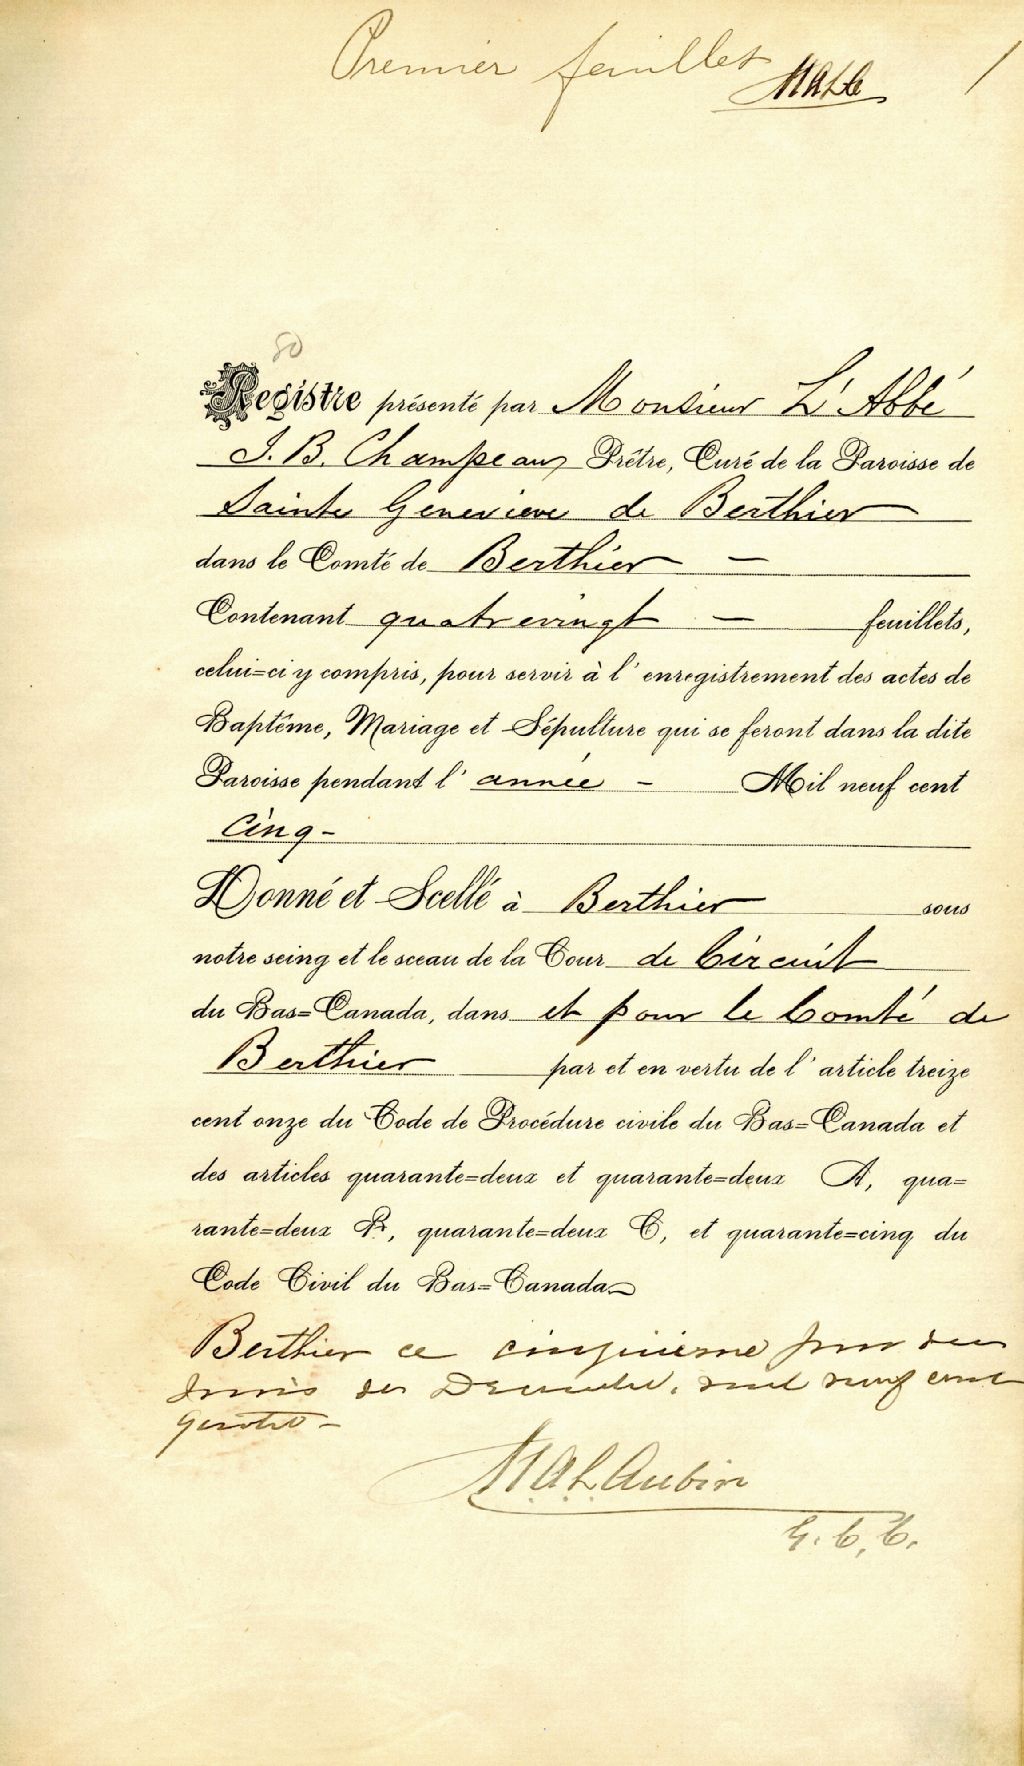 Premier feuillet MALA 1
80
Registre présenté par Monsieur L'Abbé
J. B. Champeaux Prêtre, Curé de la Paroisse de
Sainte Genevieve de Berthier
dans le Comté de Berthier —
Contenant quatrevingt — feuillets,
celui=ci y compris, pour servir à l' enregistrement des actes de
Baptême, Mariage et Sépulture qui se feront dans la dite
Paroisse pendant l' année - Mil neuf cent
Cinq -
Donné et Scellé à Berthier sous
notre seing et le sceau de la Cour de Circuit
du Bas=Canada, dans et pour le Comté de
Berthier par et en vertu de l' article treize
cent onze du Code de Procédure civile du Bas=Canada et
des articles quarante=deux et quarante=deux A, qua=
rante=deux B, quarante=deux C, et quarante=cinq du
Code Civil du Bas=Canada
Berthier ce cinquieme jour du
mois de Decembre, mil neuf cent
quatre -
M.A.L. Aubin
G. C. C.